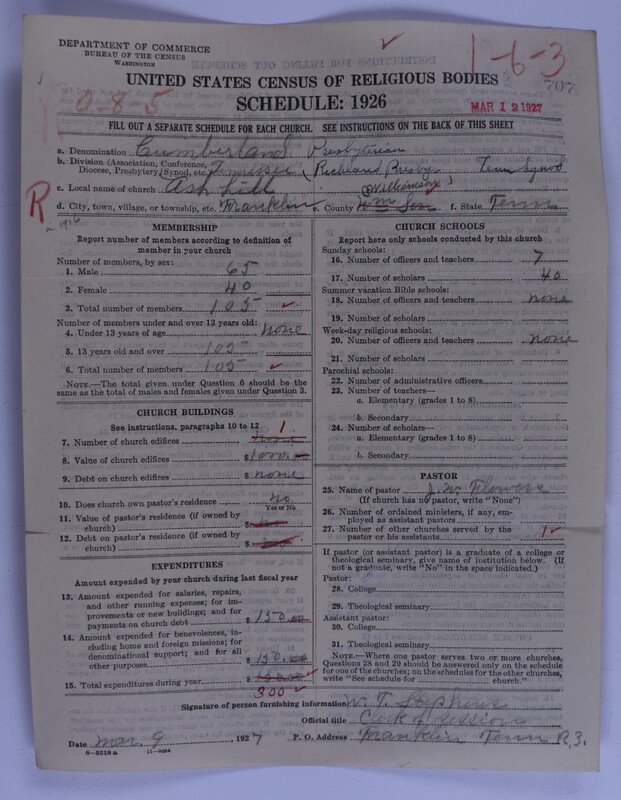 DEPARTMENT OF COMMERCE
BUREAU OF THE CENSUS
WASHINGTON
1-6-3
707
UNITED STATES CENSUS OF RELIGIOUS BODIES
0-8-5
SCHEDULE: 1926
MAR 12 1927
FILL OUT A SEPARATE SCHEDULE FOR EACH CHURCH. SEE INSTRUCTIONS ON THE BACK OF THIS SHEET
a. Denomination Cumberland Presbyterian
b. Division (Association, Conference, Diocese, Presbytery, Synod, etc.) Tennessee (Richland Presby. Tenn Synod
c. Local name of church Ash Hill
(Williamson)
d. City, town, village, or township, etc. Franklin e. County Wm Son f. State Tenn
R
MEMBERSHIP
Report number of members according to definition of member in your church
Number of members, by sex:
1. Male 65
2. Female 40
3. Total number of members 105 ✓
Number of members under and over 13 years old:
4. Under 13 years of age None
5. 13 years old and over 105
6. Total number of members 105 ✓
NOTE.—The total given under Question 6 should be the same as the total of males and females given under Question 3.
CHURCH BUILDINGS
See instructions, paragraphs 10 to 12
7. Number of church edifices 1
8. Value of church edifices $ 1000.00
9. Debt on church edifices $ none
10. Does church own pastor's residence No
Yes or No
11. Value of pastor's residence (if owned by church) $
12. Debt on pastor's residence (if owned by church) $
EXPENDITURES
Amount expended by your church during last fiscal year
13. Amount expended for salaries, repairs, and other running expenses; for improvements or new buildings; and for payments on church debt $ 150.00
14. Amount expended for benevolences, including home and foreign missions; for denominational support; and for all other purposes $ 150.00
15. Total expenditures during year $
300 ✓
CHURCH SCHOOLS
Report here only schools conducted by this church
Sunday schools:
16. Number of officers and teachers 7
17. Number of scholars 40
Summer vacation Bible schools:
18. Number of officers and teachers none
19. Number of scholars
Week-day religious schools:
20. Number of officers and teachers none
21. Number of scholars
Parochial schools:
22. Number of administrative officers
23. Number of teachers—
a. Elementary (grades 1 to 8)
b. Secondary
24. Number of scholars—
a. Elementary (grades 1 to 8)
b. Secondary
PASTOR
25. Name of pastor J. W. Flowers
(If church has no pastor, write "None")
26. Number of ordained ministers, if any, employed as assistant pastors
27. Number of other churches served by the pastor or his assistants 1 ✓
If pastor (or assistant pastor) is a graduate of a college or theological seminary, give name of institution below. (If not a graduate, write "No" in the space indicated.)
Pastor:
28. College
29. Theological seminary
Assistant pastor:
30. College
31. Theological seminary
NOTE.—Where one pastor serves two or more churches, Questions 28 and 29 should be answered only on the schedule for one of the churches; on the schedules for the other churches, write "See schedule for church."
Signature of person furnishing information W. T. Stephens
Official title Clerk of Session
Date Mar. 9, 1927 P. O. Address Franklin Tenn R.3.
8-5518 a 11-9084